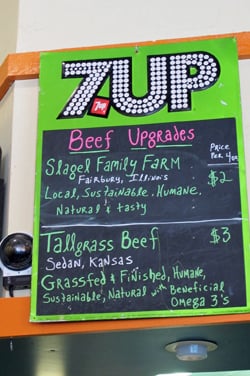 7UP
7up
Beef Upgrades
Slagel Family Farm
Price
Per 4oz
Fairbury, Illinois
$2
Local, Sustainable, Humane,
Natural & tasty
Tallgrass Beef
$3
Sedan, Kansas
Grassfed & Finished, Humane,
Sustainable, Natural with Beneficial
Omega 3's